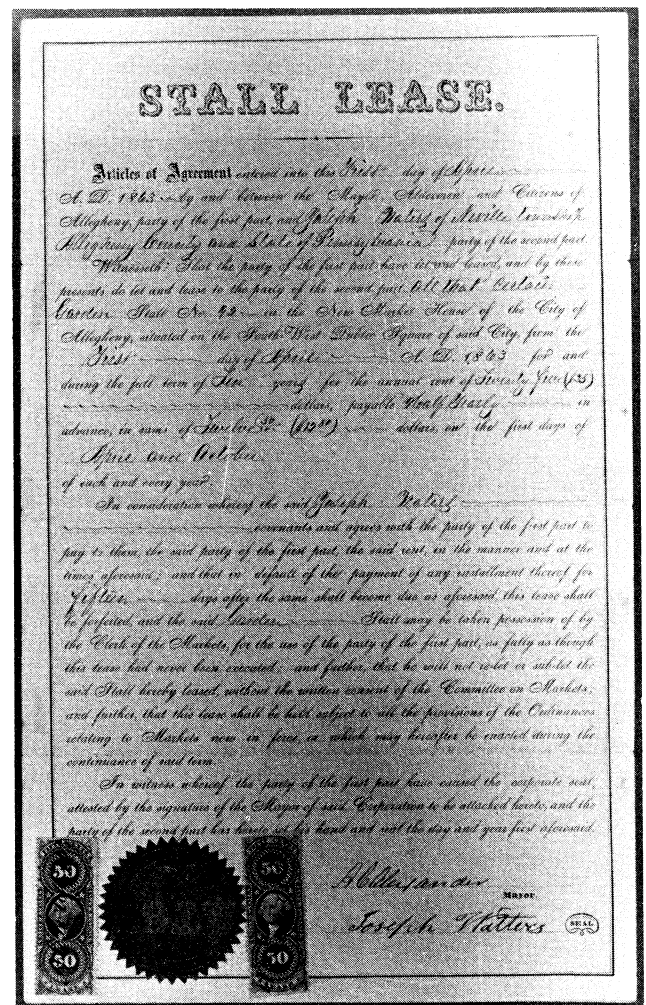 STALL LEASE.
Articles of Agreement entered into this First day of April
A. D. 1863 by and between the Mayor, Aldermen and Citizens of
Allegheny, party of the first part, and Joseph Waters of Neville Township
Allegheny County and State of Pennsylvania, party of the second part.
Witnesseth: That the party of the first part have let and leased, and by these
presents do let and lease to the party of the second part, all that certain
Garden Stall No. 42 in the New Market House of the City of
Allegheny, situated on the South West Public Square of said City, from the
First day of April A. D. 1863 for and
during the full term of Ten years for the annual rent of Twenty five ($25)
dollars, payable Half Yearly in
advance, in sums of Twelve 50 ($12 50) dollars, on the first days of
April and October
of each and every year.
In consideration whereof the said Joseph Waters
covenants and agrees with the party of the first part to
pay to them, the said party of the first part, the said rent, in the manner and at the
times aforesaid; and that in default of the payment of any installment thereof for
fifteen days after the same shall become due as aforesaid, this lease shall
be forfeited, and the said Garden Stall may be taken possession of by
the Clerk of the Markets, for the use of the party of the first part, as fully as though
this lease had never been executed; and further, that he will not re-let or sub-let the
said Stall hereby leased, without the written consent of the Committee on Markets;
and further, that this lease shall be held subject to all the provisions of the Ordinances
relating to Markets now in force, or which may hereafter be enacted during the
continuance of said term.
In witness whereof the party of the first part have caused the corporate seal,
attested by the signature of the Mayor of said Corporation to be attached hereto, and the
party of the second part has hereto set his hand and seal the day and year first aforesaid.
A C Alexander
Mayor.
Joseph Walters
SEAL
50
50
50
50